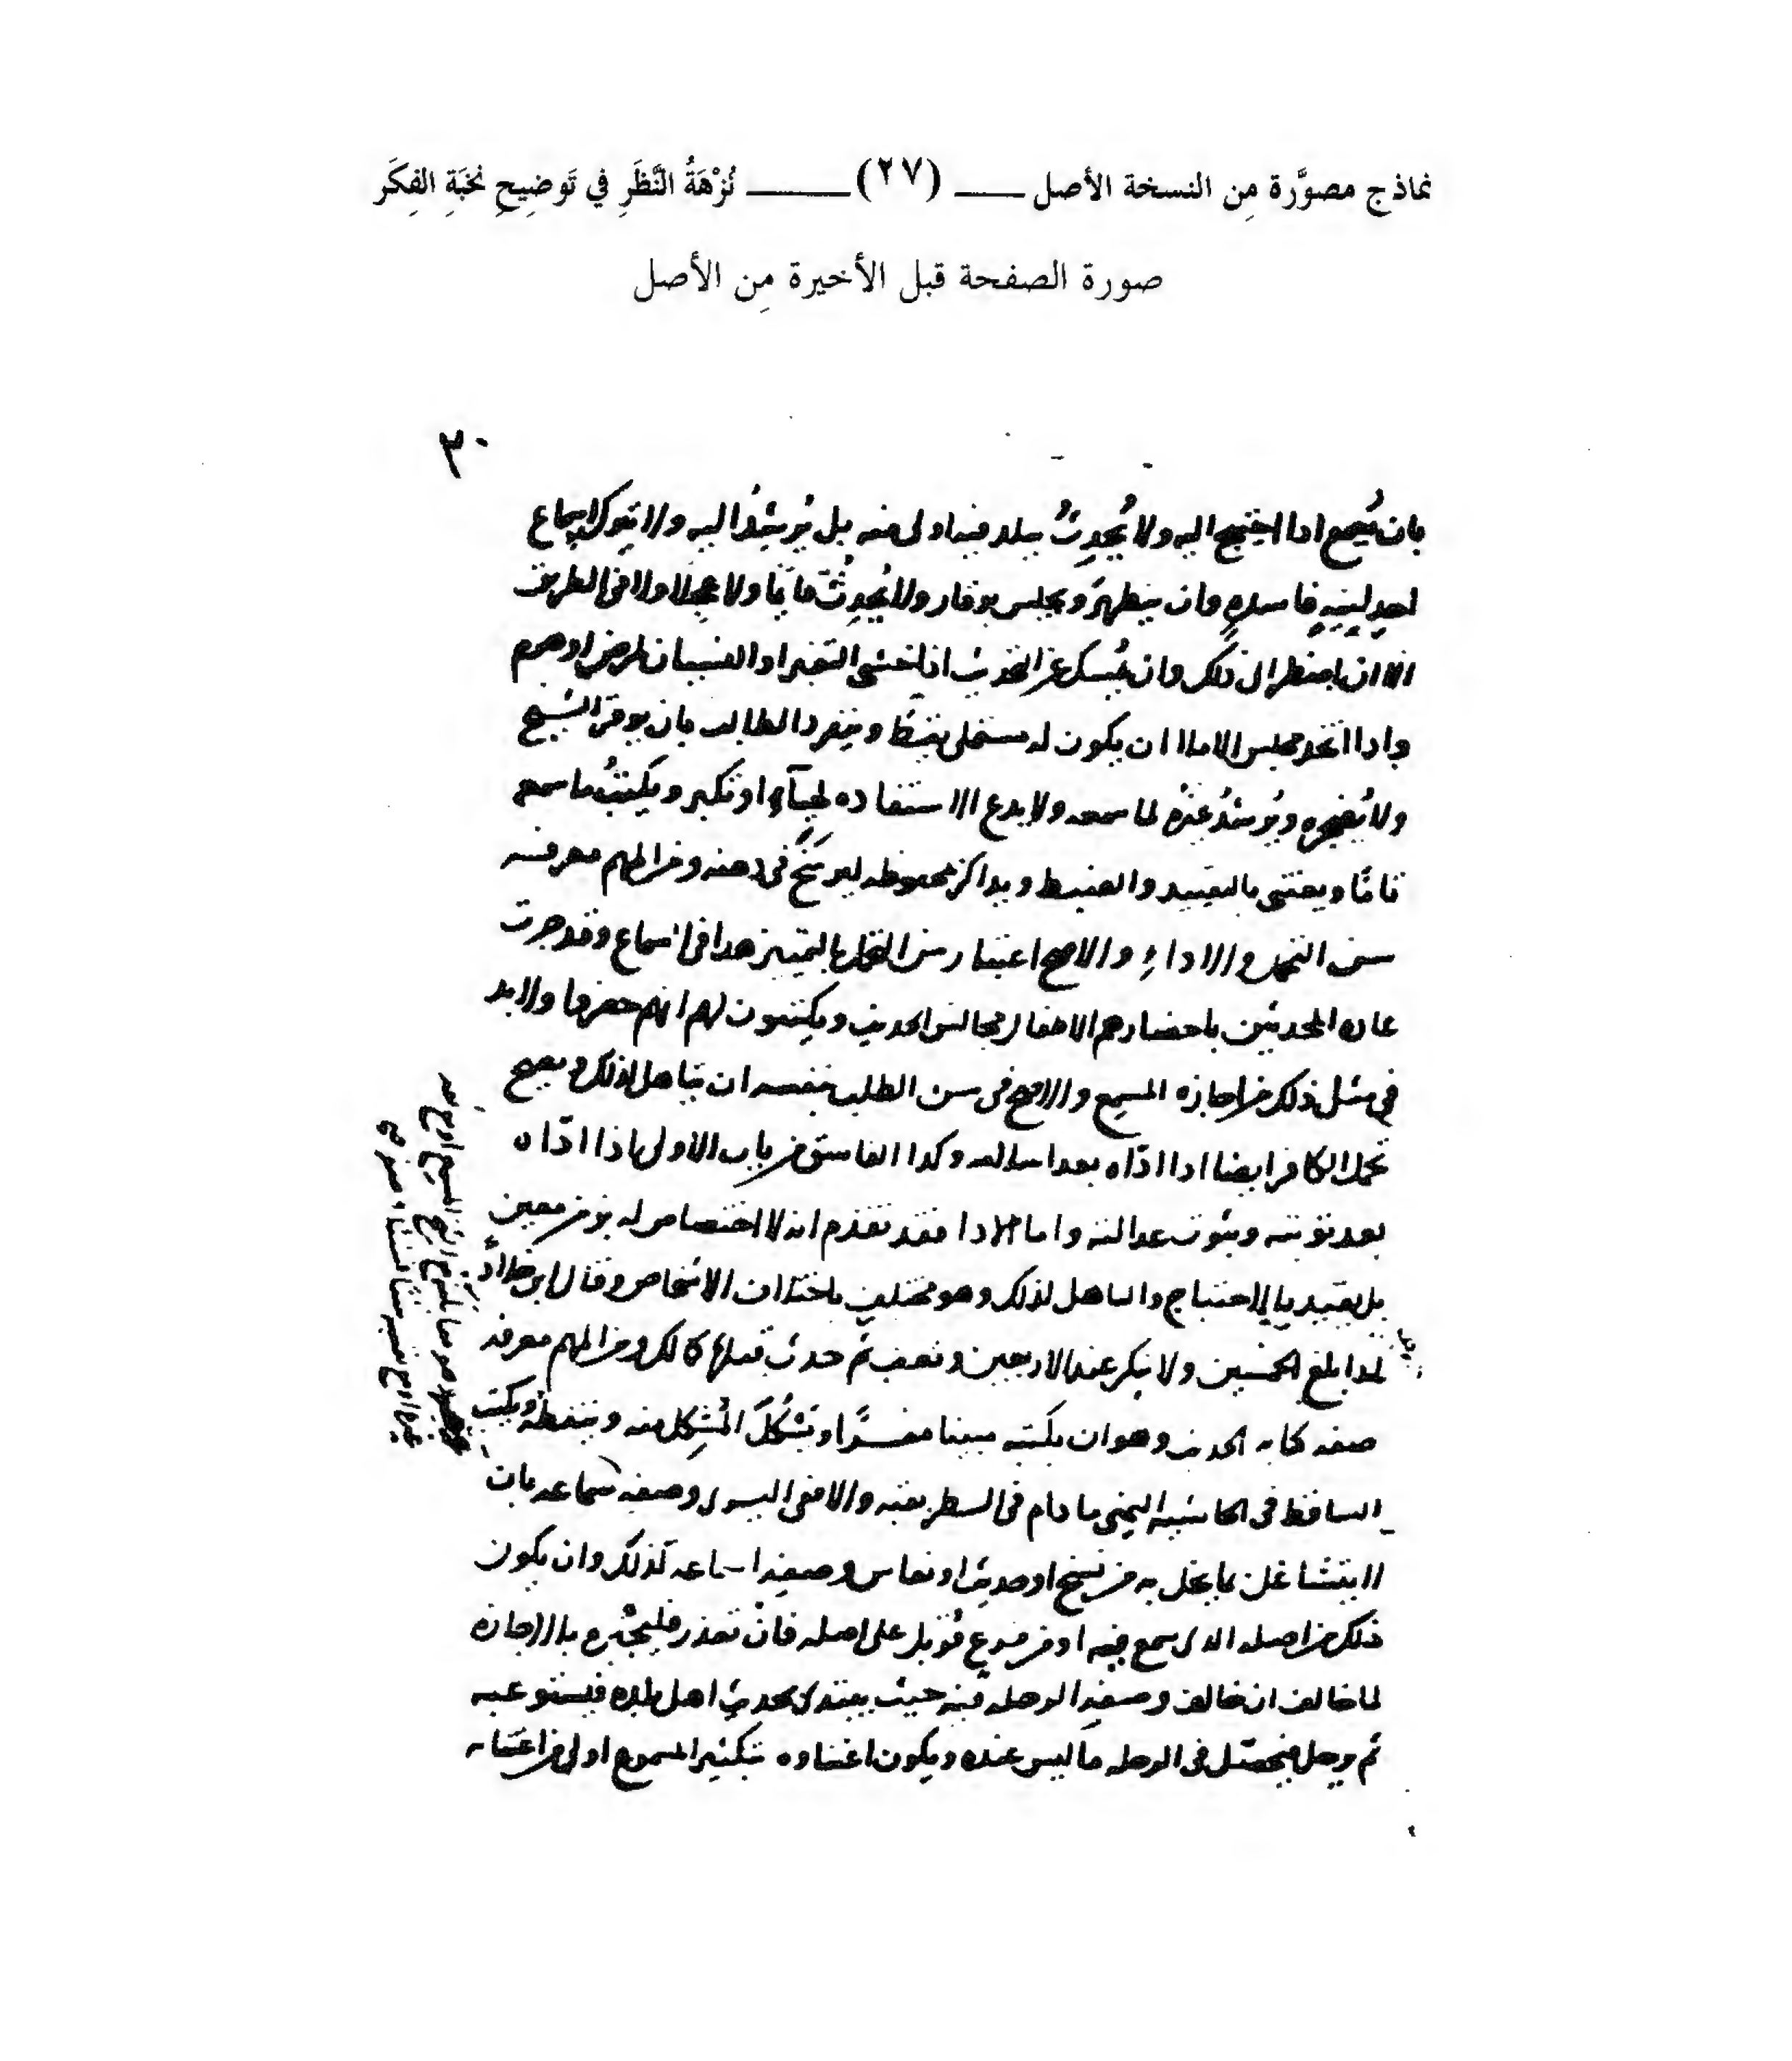 نماذج مصوَّرة مِن النسخة الأصل ــــ (٢٧) ــــ نُزْهَةُ النَّظَرِ في تَوضِيحِ نُخبَةِ الفِكَر
صورة الصفحة قبل الأخيرة مِن الأصل
٣٠
بان يُسمع اذا احتيج اليه ولا يُحدِثُ ببلد فيها اولى منه بل يُرشِدُ اليه ولا يترك اسماع
احدٍ لنيةٍ فاسدةٍ وان يتطهرَ ويجلس بوقار ولا يُحدِثُ قائما ولا عجِلا ولا في الطريق
الا ان اضطر الى ذلك وان يُمسك عن التحديث اذا خشي التغير او النسيان لمرض او هرم
واذا اتخذ مجلس الاملا ان يكون له مستملي يقظ وينفرد الطالب بان يوقر الشيخ
ولا يُضجره ويُرشدُ غيرهُ لما سمعه ولا يدع الاستفاده لحيآءٍ او تكبر ويكتبُ ما سمعه
تامًا ويعتني بالتقييد والضبط ويذاكر بمحفوظه ليرسَخَ في ذهنه ومن المهم معرفة
سن التحمل والاداءِ والاصح اعتبار سن التحمل بالتمييز هذا في السماع وقد جرت
عادة المحدثين باحضارهم الاطفال مجالس الحديث ويكتبون لهم انهم حضروا ولا بد
في مثل ذلك من اجازة المسمع والاصح في سن الطلب بنفسه ان يتاهل لذلك ويصح
تحمل الكافر ايضا اذا ادّاه بعد اسلامه وكذا الفاسق من باب الاولى اذا ادّاه
بعد توبته وثبوت عدالته واما الادا فقد تقدم انه لا اختصاص له بزمن معين
بل يقيد بالاحتياج والتاهل لذلك وهو مختلف باختلاف الاشخاص وقال ابن خلاد
اذا بلغ الخمسين ولا ينكر عند الاربعين وتعقب بمن حدث قبلها كمالك ومن المهم معرفة
صفة كتابة الحديث وهو ان يكتبه مبينا مفسرًا ويَشْكُلَ المُشكِل منه وينقطه ويكتب
الساقط في الحاشية اليمنى ما دام في السطر بقية والا ففي اليسرى وصفة سماعه بان
لا يتشاغل بما يخل به من نسخ او حديث او نعاس وصفة اسماعه كذلك وان يكون
ذلك من اصله الذي سمع فيه او من فرع قُوبل على اصله فان تعذر فليجبره بالاجازة
لما خالف ان خالف وصفة الرحلة فيه حيث يبتدئ بحديث اهل بلده فيستوعبه
ثم يرحل فيحصّل في الرحلة ما ليس عنده ويكون اعتناؤه بتكثير المسموع اولى من اعتنائه